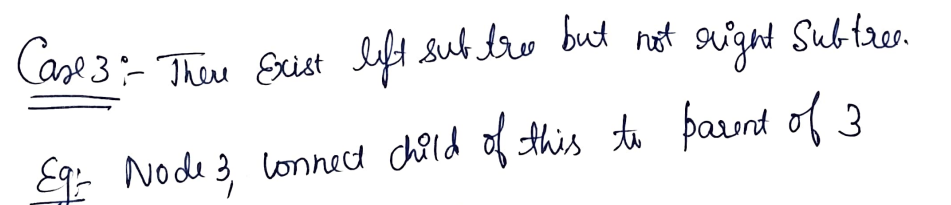 Case 3:- There Exist left sub tree but not right Subtree.
Eg:- Node 3, connect child of this to parent of 3